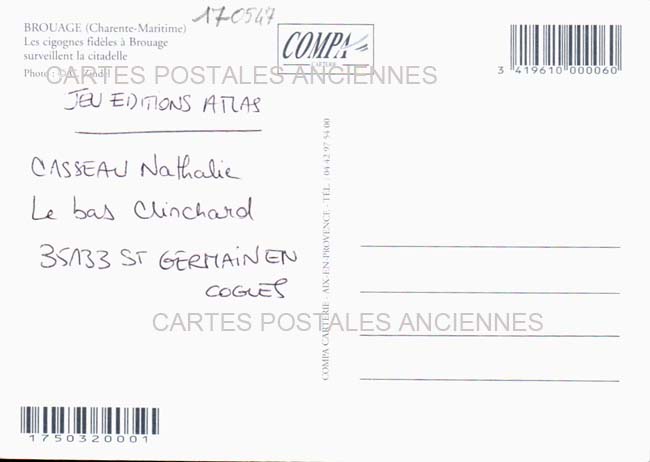 170547
BROUAGE (Charente-Maritime)
Les cigognes fidèles à Brouage
surveillent la citadelle
Photo :
COMPA
CARTERIE
3 419610 000060
CARTES POSTALES ANCIENNES
JEU EDITIONS ATLAS
CASSEAU Nathalie
Le bas Clinchard
35133 ST GERMAIN EN
COGLES
COMPA CARTERIE - AIX-EN-PROVENCE - TÉL. : 04 42 97 54 00
CARTES POSTALES ANCIENNES
1750320001